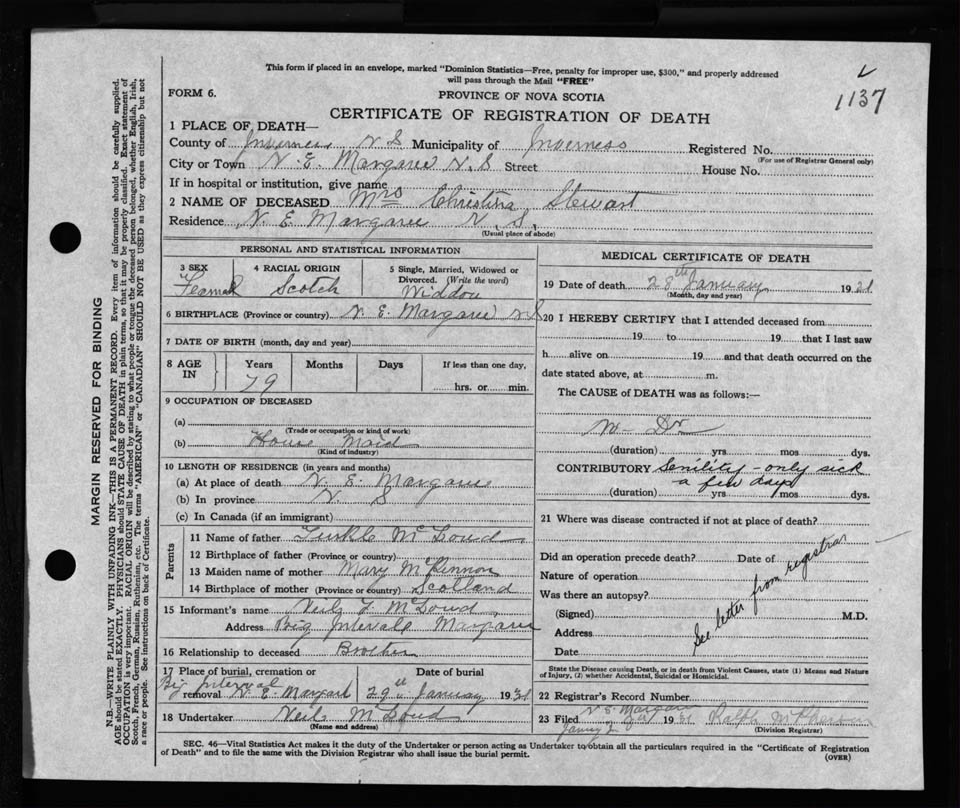 This form if placed in an envelope, marked "Dominion Statistics—Free, penalty for improper use, $300," and properly addressed
will pass through the Mail "FREE"
1137
FORM 6.
PROVINCE OF NOVA SCOTIA
CERTIFICATE OF REGISTRATION OF DEATH
1 PLACE OF DEATH—
County of Inverness N S Municipality of Inverness Registered No.
(For use of Registrar General only)
City or Town N. E. Margaree N. S Street House No.
If in hospital or institution, give name
2 NAME OF DECEASED Mrs Christina Stewart
Residence N. E Margaree N. S.
(Usual place of abode)
PERSONAL AND STATISTICAL INFORMATION
3 SEX 4 RACIAL ORIGIN 5 Single, Married, Widowed or
Divorced. (Write the word)
Scotch Widdow
6 BIRTHPLACE (Province or country) N. E. Margaree N S
7 DATE OF BIRTH (month, day and year)
8 AGE IN Years Months Days If less than one day,
79 hrs. or min.
9 OCCUPATION OF DECEASED
(a)
(Trade or occupation or kind of work)
(b) House Maid
(Kind of industry)
10 LENGTH OF RESIDENCE (in years and months)
(a) At place of death N. E. Margaree
(b) In province N. S
(c) In Canada (if an immigrant)
Parents
11 Name of father McLoud
12 Birthplace of father (Province or country)
13 Maiden name of mother Mary McKinnon
14 Birthplace of mother (Province or country) Scotland
15 Informant's name Neil McLoud
Address Big Intervale Margaree
16 Relationship to deceased Brother
17 Place of burial, cremation or removal Date of burial
Big Interval
N. E. Margaree 29th January 1931
18 Undertaker Neil McLoud
(Name and address)
MEDICAL CERTIFICATE OF DEATH
19 Date of death 28th January 1931
(Month, day and year)
20 I HEREBY CERTIFY that I attended deceased from
19 to 19 that I last saw
h alive on 19 and that death occurred on the
date stated above, at m.
The CAUSE of DEATH was as follows:—
No Dr
(duration) yrs mos dys.
CONTRIBUTORY Senility - only sick
a few days
(duration) yrs mos dys.
21 Where was disease contracted if not at place of death?
Did an operation precede death? Date of
Nature of operation
Was there an autopsy?
(Signed) M.D.
Address
Date
See letter from registrar
State the Disease causing Death, or in death from Violent Causes, state (1) Means and Nature
of Injury, (2) whether Accidental, Suicidal or Homicidal.
22 Registrar's Record Number
23 Filed 1931 Ralph McPherson
(Division Registrar)
SEC. 46—Vital Statistics Act makes it the duty of the Undertaker or person acting as Undertaker to obtain all the particulars required in the "Certificate of Registration
of Death" and to file the same with the Division Registrar who shall issue the burial permit.
(OVER)
MARGIN RESERVED FOR BINDING
N.B.—WRITE PLAINLY WITH UNFADING INK—THIS IS A PERMANENT RECORD. Every item of information should be carefully supplied.
AGE should be stated EXACTLY. PHYSICIANS should STATE CAUSE OF DEATH in plain terms, so that it may be properly classified. Exact statement of
OCCUPATION is very important. RACIAL ORIGIN will be described by stating to what people or tongue the deceased person belonged, whether English, Irish,
Scotch, French, German, Russian, Ruthenian, etc. The terms "AMERICAN" or "CANADIAN" SHOULD NOT BE USED as they express citizenship but not
a race or people. See instructions on back of Certificate.